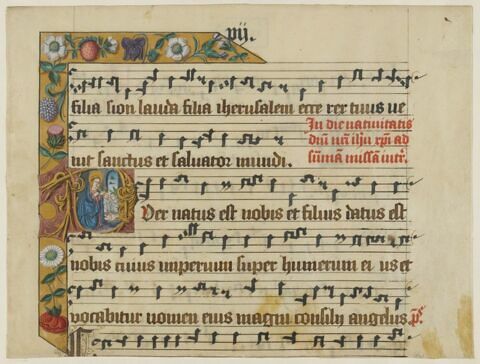 vij.
filia sion lauda filia iherusalem ecce rex tuus ve
nit sanctus et salvator mundi.
In die nativitatis
dni nri ihu xpi ad
sūmā missā intr.
Puer natus est nobis et filius datus est
nobis cuius imperium super humerum ei us et
vocabitur nomen eius magni consilij angelus. ps.